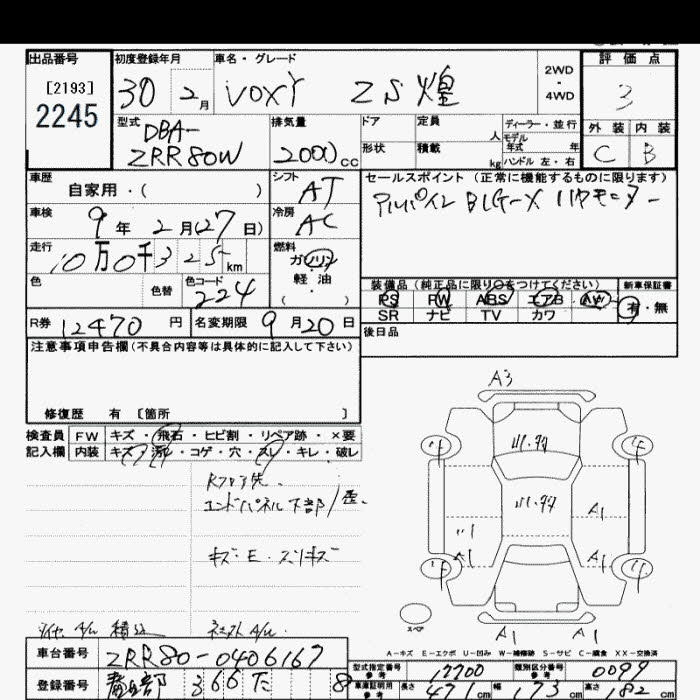 出品番号
[2193]
2245
初度登録年月
30 2月
車名・グレード
VOXY ZS 煌
2WD
・
4WD
評価点
3
型式
DBA-
ZRR80W
排気量
2000 cc
ドア
定員
人
ディーラー・並行
モデル
年式 年
形状
積載
kg
ハンドル 左・右
外装 内装
C B
車歴
自家用・( )
シフト
AT
セールスポイント (正常に機能するものに限ります)
アルパイン BIG-X リヤモニター
車検
9年 2月(27日)
冷房
AC
走行
10万0千325km
燃料
ガソリン
軽油
・
( )
色
色替
色コード
224
装備品 (純正品に限り○をつけてください)
新車保証書
PS PW ABS エアB AW
SR ナビ TV カワ
有・無
R券 12470 円
名変期限 9月20日
後日品
注意事項申告欄(不具合内容等は具体的に記入して下さい)
修復歴 有 [箇所 ]
検査員
記入欄
FW キズ・飛石・ヒビ割・リペア跡・×要
内装 キズ・汚レ・コゲ・穴・スレ・キレ・破レ
Rフロア先
エンドパネル下部/歪
キズ・E・スリキズ
A3
A1
A1
A1
A1
A1
A1
スペア
A-キズ E-エクボ U-凹み W-補修跡 S-サビ C-腐食 XX-交換済
車台番号
ZRR80-0406167
登録番号
366 た 8
型式指定番号
参考
17700
類別区分番号
参考
0099
車庫証明用
参考
長さ 471cm
幅 173cm
高さ 182cm